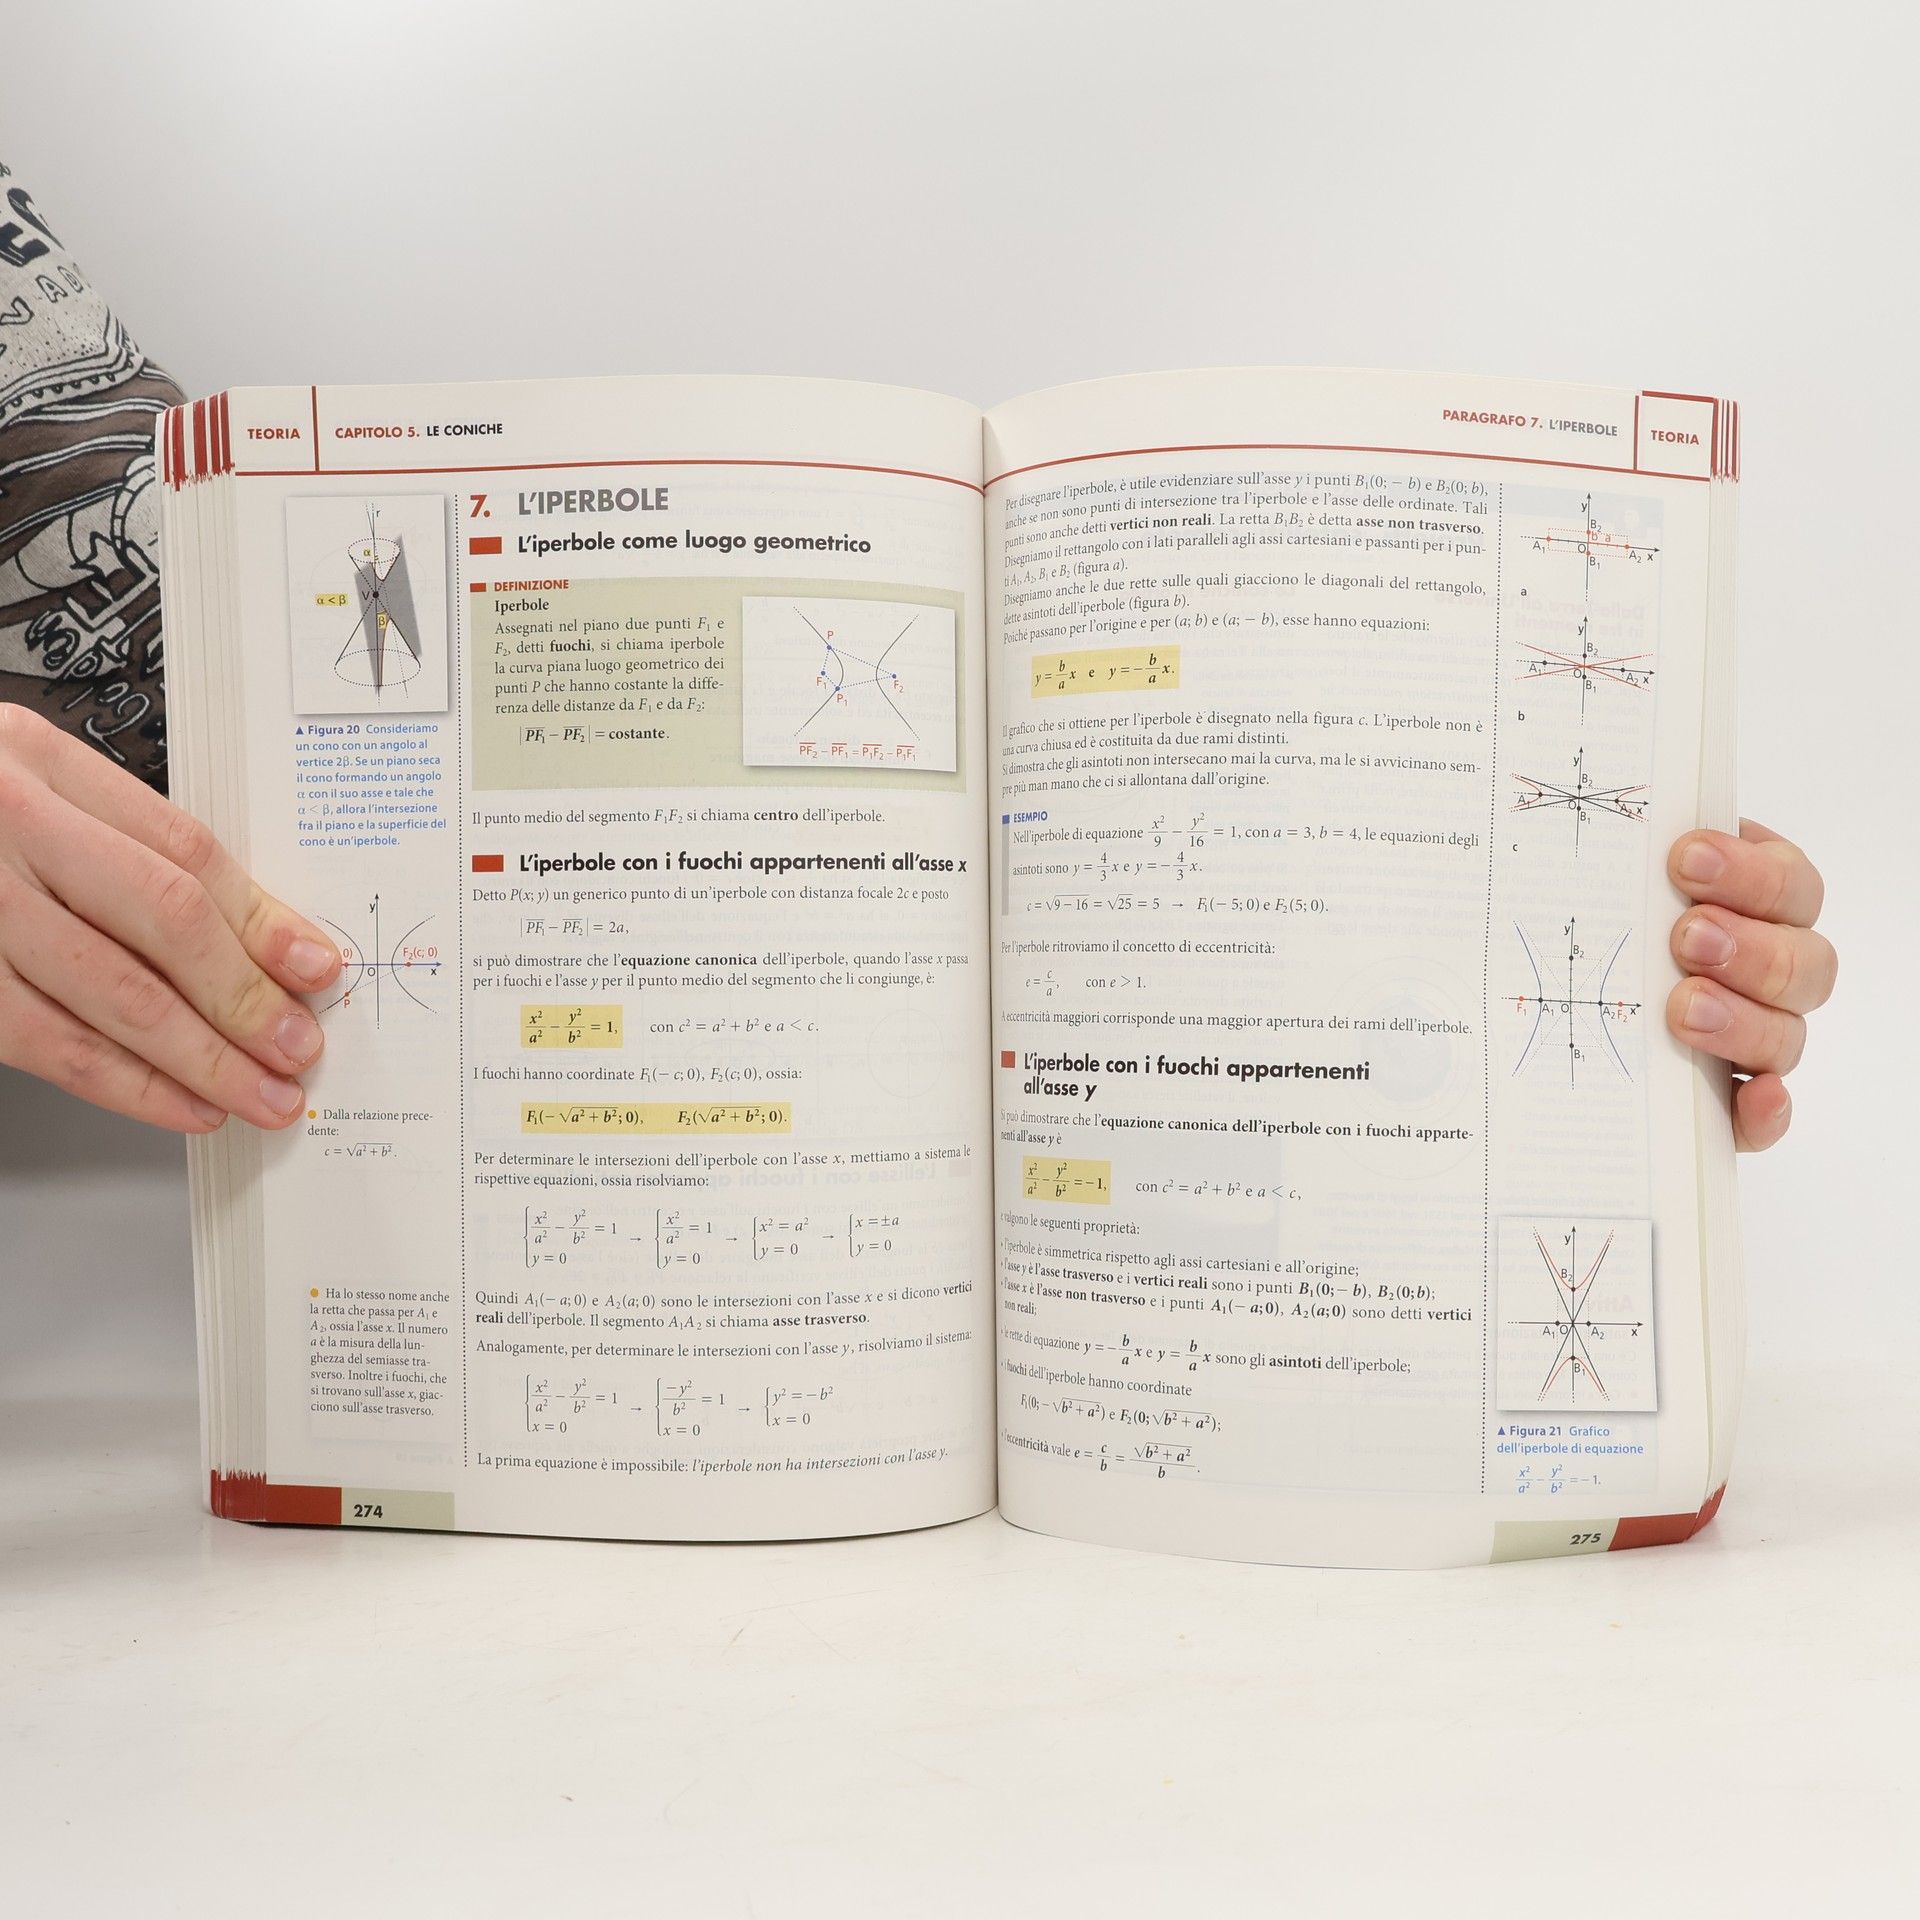 TEORIA
CAPITOLO 5. LE CONICHE
α < β
r
α
V
β
▲ Figura 20 Consideriamo
un cono con un angolo al
vertice 2β. Se un piano seca
il cono formando un angolo
α con il suo asse e tale che
α < β, allora l'intersezione
fra il piano e la superficie del
cono è un'iperbole.
y
0)
F₂(c; 0)
O
x
P
● Dalla relazione prece-
dente:
c = √(a² + b²).
● Ha lo stesso nome anche
la retta che passa per A₁ e
A₂, ossia l'asse x. Il numero
a è la misura della lun-
ghezza del semiasse tra-
sverso. Inoltre i fuochi, che
si trovano sull'asse x, giac-
ciono sull'asse trasverso.
7. L'IPERBOLE
L'iperbole come luogo geometrico
DEFINIZIONE
Iperbole
Assegnati nel piano due punti F₁ e
F₂, detti fuochi, si chiama iperbole
la curva piana luogo geometrico dei
punti P che hanno costante la diffe-
renza delle distanze da F₁ e da F₂:
|PF₁ − PF₂| = costante.
P
F₁
P₁
F₂
PF₂ − PF₁ = P₁F₂ − P₁F₁
Il punto medio del segmento F₁F₂ si chiama centro dell'iperbole.
L'iperbole con i fuochi appartenenti all'asse x
Detto P(x; y) un generico punto di un'iperbole con distanza focale 2c e posto
|PF₁ − PF₂| = 2a,
si può dimostrare che l'equazione canonica dell'iperbole, quando l'asse x passa
per i fuochi e l'asse y per il punto medio del segmento che li congiunge, è:
x²/a² − y²/b² = 1, con c² = a² + b² e a < c.
I fuochi hanno coordinate F₁(− c; 0), F₂(c; 0), ossia:
F₁(− √(a² + b²); 0), F₂(√(a² + b²); 0).
Per determinare le intersezioni dell'iperbole con l'asse x, mettiamo a sistema le
rispettive equazioni, ossia risolviamo:
{x²/a² − y²/b² = 1 → {x²/a² = 1 → {x² = a² → {x = ±a
y = 0 y = 0 y = 0 y = 0
Quindi A₁(− a; 0) e A₂(a; 0) sono le intersezioni con l'asse x e si dicono vertici
reali dell'iperbole. Il segmento A₁A₂ si chiama asse trasverso.
Analogamente, per determinare le intersezioni con l'asse y, risolviamo il sistema:
{x²/a² − y²/b² = 1 → {−y²/b² = 1 → {y² = − b²
x = 0 x = 0 x = 0
La prima equazione è impossibile: l'iperbole non ha intersezioni con l'asse y.
274
PARAGRAFO 7. L'IPERBOLE
TEORIA
Per disegnare l'iperbole, è utile evidenziare sull'asse y i punti B₁(0; − b) e B₂(0; b),
anche se non sono punti di intersezione tra l'iperbole e l'asse delle ordinate. Tali
punti sono anche detti vertici non reali. La retta B₁B₂ è detta asse non trasverso.
Disegniamo il rettangolo con i lati paralleli agli assi cartesiani e passanti per i pun-
ti A₁, A₂, B₁ e B₂ (figura a).
Disegniamo anche le due rette sulle quali giacciono le diagonali del rettangolo,
dette asintoti dell'iperbole (figura b).
Poiché passano per l'origine e per (a; b) e (a; − b), esse hanno equazioni:
y = b/a x e y = − b/a x.
Il grafico che si ottiene per l'iperbole è disegnato nella figura c. L'iperbole non è
una curva chiusa ed è costituita da due rami distinti.
Si dimostra che gli asintoti non intersecano mai la curva, ma le si avvicinano sem-
pre più man mano che ci si allontana dall'origine.
ESEMPIO
Nell'iperbole di equazione x²/9 − y²/16 = 1, con a = 3, b = 4, le equazioni degli
asintoti sono y = 4/3 x e y = − 4/3 x.
c = √(9 − 16) = √25 = 5 → F₁(− 5; 0) e F₂(5; 0).
Per l'iperbole ritroviamo il concetto di eccentricità:
e = c/a, con e > 1.
A eccentricità maggiori corrisponde una maggior apertura dei rami dell'iperbole.
L'iperbole con i fuochi appartenenti
all'asse y
Si può dimostrare che l'equazione canonica dell'iperbole con i fuochi apparte-
nenti all'asse y è
x²/a² − y²/b² = − 1, con c² = a² + b² e a < c,
e valgono le seguenti proprietà:
l'iperbole è simmetrica rispetto agli assi cartesiani e all'origine;
l'asse y è l'asse trasverso e i vertici reali sono i punti B₁(0; − b), B₂(0; b);
l'asse x è l'asse non trasverso e i punti A₁(− a; 0), A₂(a; 0) sono detti vertici
non reali;
le rette di equazione y = − b/a x e y = b/a x sono gli asintoti dell'iperbole;
i fuochi dell'iperbole hanno coordinate
F₁(0; − √(b² + a²)) e F₂(0; √(b² + a²));
l'eccentricità vale e = c/b = √(b² + a²)/b.
y
B₂
b
a
A₁
O
A₂
x
B₁
a
y
B₂
A₂
x
B₁
b
y
B₂
A₁
O
A₂
x
B₁
c
y
B₂
F₁
A₁
O
A₂
F₂
x
B₁
y
B₂
A₁
O
A₂
x
B₁
▲ Figura 21 Grafico
dell'iperbole di equazione
x²/a² − y²/b² = − 1.
275